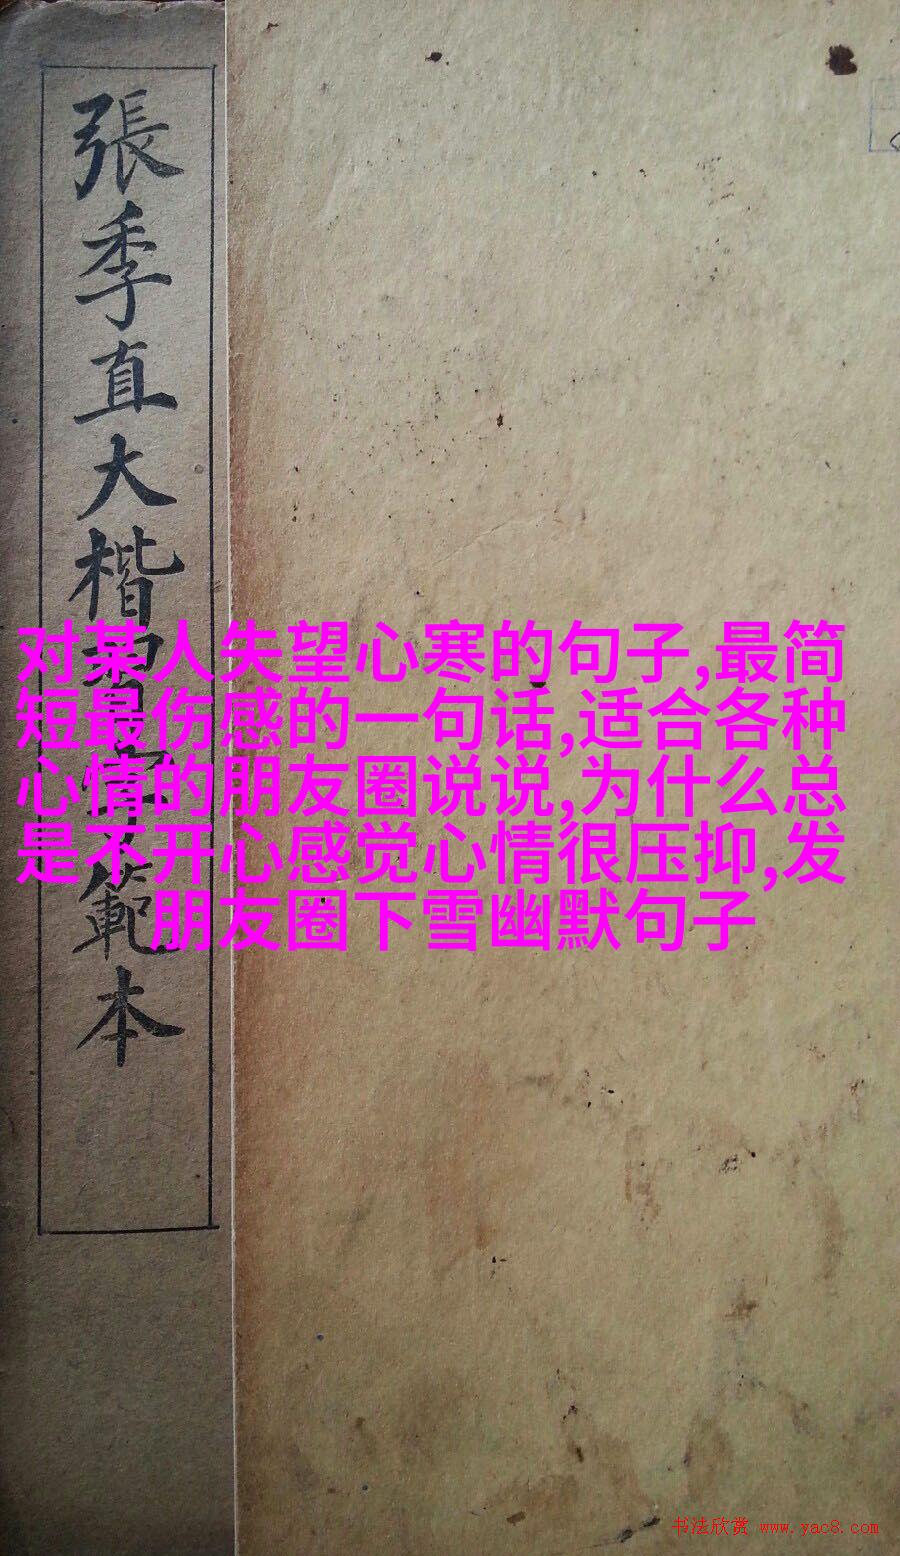 張季直大楷習字範本
对某人失望心寒的句子,最简
短最伤感的一句话,适合各种
心情的朋友圈说说,为什么总
是不开心感觉心情很压抑,发
朋友圈下雪幽默句子
书法欣赏 www.yac8.com